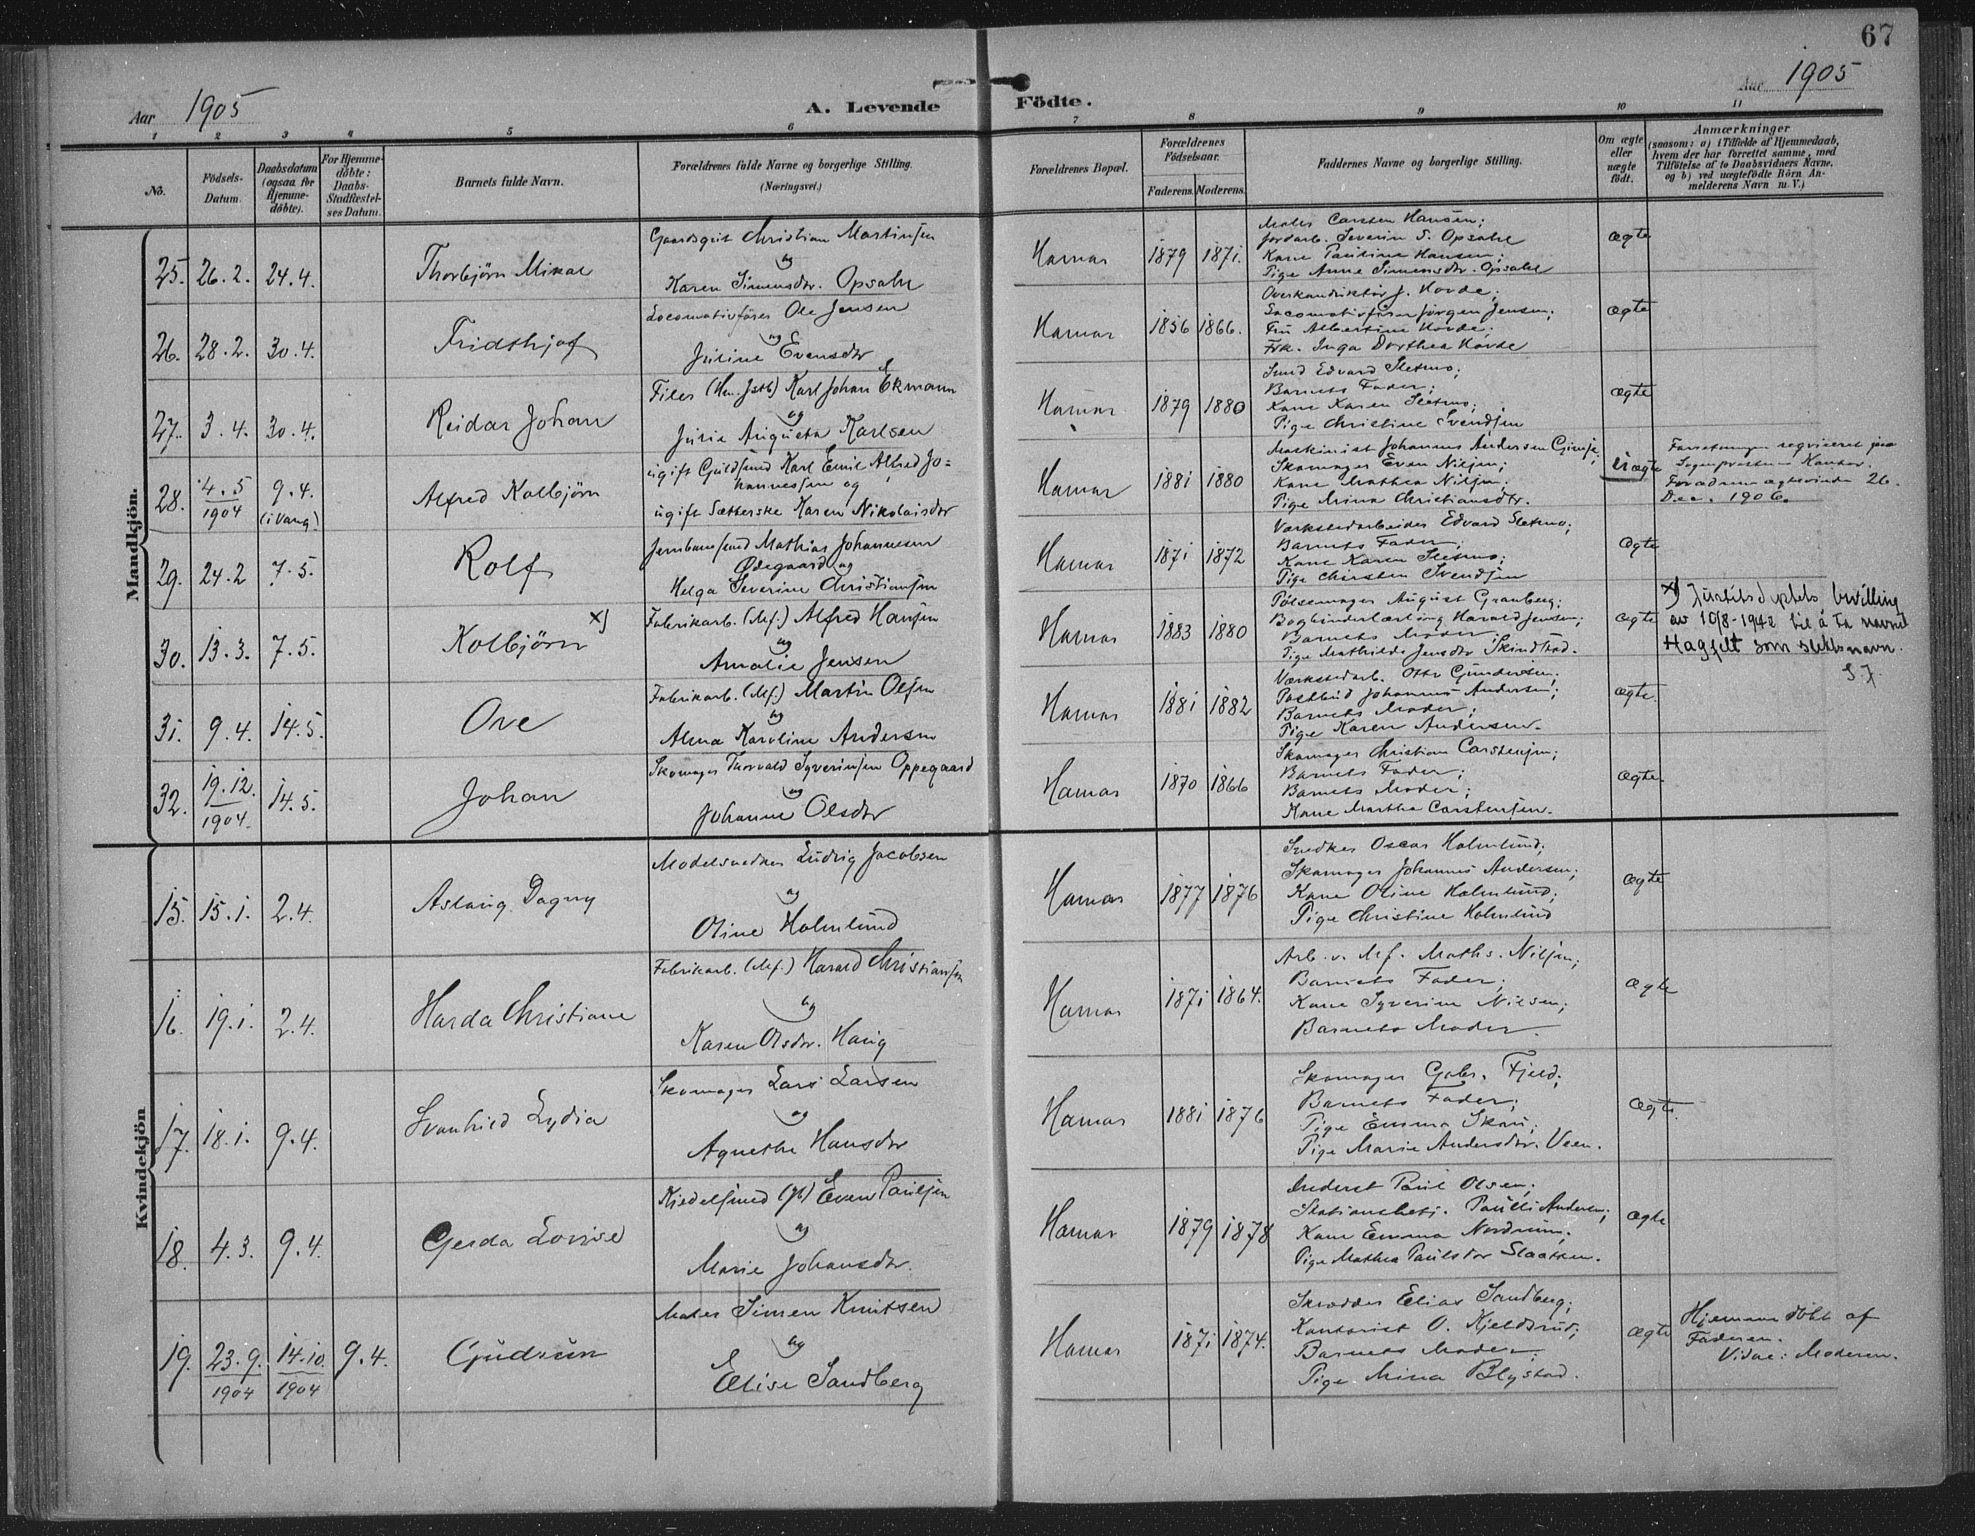 67
Aar 1905
A. Levende Födte.
Aar 1905
1 2 3 4 5 6 7 8 9 10 11
No.
Födsels-
Datum.
Daabsdatum
(ogsaa for
Hjemme-
døbte).
For Hjemme-
døbte:
Daabs-
Stadfæstel-
ses Datum.
Barnets fulde Navn.
Forældrenes fulde Navne og borgerlige Stilling.
(Næringsvei.)
Forældrenes Bopæl.
Forældrenes
Fødselsaar.
Faderens. Moderens.
Faddernes Navne og borgerlige Stilling.
Om ægte
eller
uægte
født.
Anmærkninger
(saasom: a) i Tilfælde af Hjemmedaab,
hvem der har forrettet samme, med
Tilføielse af to Daabsvidners Navne,
og b) ved uægtefødte Börn An-
melderens Navn m. V.)
Mandkjön.
25. 26.2. 24.4. Thorbjørn Mikal
Christian Martinsen
og
Karen Simensdtr. Opsahl
Hamar 1879 1871.
Maler Carsten Hansen;
Jordarb. Severin S. Opsahl
Kone Pauline Hansen;
Pige Anne Simensdtr. Opsahl
ægte
26. 28.2. 30.4. Fridthjof
Locomotivfører Ole Jensen
og
Juline Evensdtr
Hamar 1856 1866.
Overkonduktør J. Hovde;
Locomotivfører Jørgen Jensen;
Fru Albertine Hovde;
Frk. Inga Dorthea Hovde
ægte
27. 3.4. 30.4. Reidar Johan
Filer (Ham. Jstb) Karl Johan Ekmann
og
Julie Augusta Karlsen
Hamar 1879 1880
Smed Edvard Sletmo;
Barnets Fader;
Kone Karen Sletmo;
Pige Christine Svendsen
ægte
28. 4.5 1904 9.4. (i Vang) Alfred Kolbjörn
ugift Guldsmed Karl Emil Alfred Jo-
hannessen og
ugift Sætterske Karen Nikolaisdtr
Hamar 1881 1880
Maskinist Johannes Andersen Gimse;
Skomager Even Nilsen;
Kone Mathea Nilsen;
Pige Mina Christiansdtr.
uægte
Forældrene ægteviede 26.
Dec. 1906.
29. 24.2 7.5. Rolf
Jernbanesmed Mathias Johannesen
Ødegaard og
Helga Severine Christiansen
Hamar 1871 1872
Værkstedarbeider Edvard Sletmo;
Barnets Fader;
Kone Karen Sletmo;
Pige Kirsten Svendsen
ægte
30. 13.3. 7.5. Kolbjörn x)
Fabrikarb. (Mf.) Alfred Hansen
og
Amalie Jensen
Hamar 1883 1880
Pølsemager August Granberg;
Bogbinderlærling Harald Jensen;
Barnets Moder
Pige Mathilde Jensdtr Skindstad.
ægte
x) Justitsd.eptets bevilling
av 10/8-1942 til å ta navnet
Hagfelt som slektsnavn.
S.J.
31. 9.4. 14.5. Ove
Fabrikarb. (Mf.) Martin Olsen
og
Alma Karoline Andersen
Hamar 1881 1882
Værkstedarb. Otto Gundersen;
Postbud Johannes Andersen;
Barnets Moder;
Pige Karen Andersen.
ægte.
32. 19.12. 1904. 14.5. Johan
Skomager Thorvald Syverinsen Oppegaard
og
Johanne Olsdtr
Hamar 1870 1866
Skomager Christian Carstensen;
Barnets Fader;
Barnets Moder;
Kone Martha Carstensen.
ægte.
Kvindekjön
15. 15.1. 2.4. Aslaug Dagny
Modelsnedker Ludvig Jacobsen
og
Oline Holmlund
Hamar 1877 1876
Snedker Oscar Holmlund;
Skomager Johannes Andersen;
Kone Oline Holmlund;
Pige Christine Holmlund
ægte
16. 19.1. 2.4. Harda Christiane
Fabrikarb. (Mf.) Harald Christiansen
og
Karen Olsdtr. Haug
Hamar 1871 1864.
Arb. v. Mf. Maths. Nilsen;
Barnets Fader;
Kone Syverine Nilsen;
Barnets Moder.
ægte
17. 18.1. 9.4. Svanhild Lydia
Skomager Lars Larsen
og
Agnethe Hansdtr
Hamar 1881 1876
Skomager Gabr. Fjeld;
Barnets Fader;
Pige Emma Skau;
Pige Marie Andersdtr. Veen.
ægte.
18. 4.3. 9.4. Gerda Lovise
Kjedelsmed Even Paulsen
og
Marie Johansdtr.
Hamar 1879 1878
Inderst Paul Olsen;
Stationsbetj. Paulli Andersen;
Kone Emma Nordrum;
Pige Mathea Paulsdtr Slaatsen.
ægte
19. 23.9. 1904 14.10. 1904 9.4. Gudrun
Maler Simen Knutsen
og
Elise Sandberg
Hamar 1871 1874.
Skrædder Elias Sandberg;
Kontorist O. Kjeldsrud;
Barnets Moder;
Pige Mina Blystad.
ægte
Hjemmedøbt af
Faderen.
Vidne: Moderen.